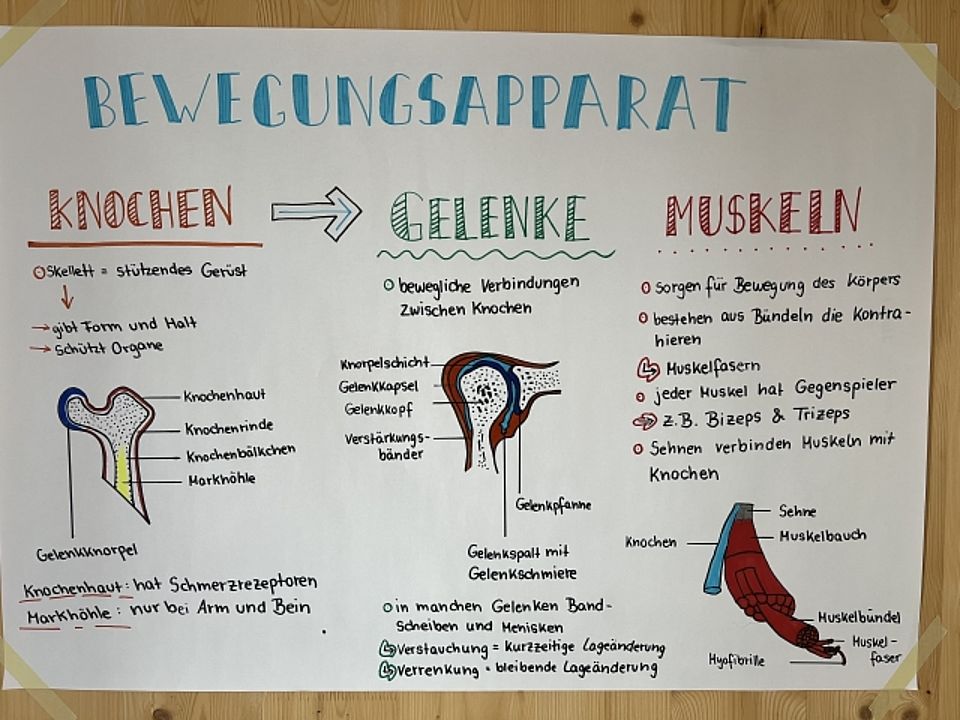 BEWEGUNGSAPPARAT
KNOCHEN
Skellett = stützendes Gerüst
gibt Form und Halt
Schützt Organe
Knochenhaut
Knochenrinde
Knochenbälkchen
Markhöhle
Gelenkknorpel
Knochenhaut: hat Schmerzrezeptoren
Markhöhle: nur bei Arm und Bein
GELENKE
bewegliche Verbindungen
zwischen Knochen
Knorpelschicht
Gelenkkapsel
Gelenkkopf
Verstärkungs-
bänder
Gelenkpfanne
Gelenkspalt mit
Gelenkschmiere
in manchen Gelenken Band-
scheiben und Menisken
Verstauchung = Kurzzeitige Lageänderung
Verrenkung = bleibende Lageänderung
MUSKELN
sorgen für Bewegung des Körpers
bestehen aus Bündeln die Kontra-
hieren
Muskelfasern
jeder Muskel hat Gegenspieler
z.B. Bizeps & Trizeps
Sehnen verbinden Muskeln mit
Knochen
Sehne
Knochen
Muskelbauch
Muskelbündel
Muskel-
faser
Myofibrille